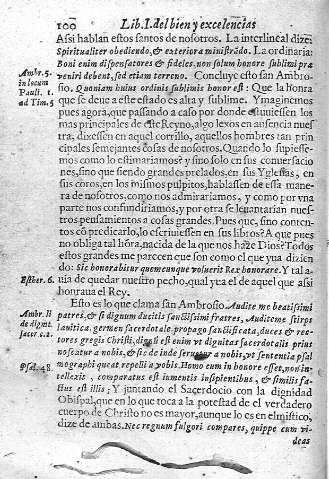 100 Lib. I. del bien y excelencias
Assi hablan estos santos de nosotros. La interlineal dize:
Spiritualiter obediendo, & exteriora ministrãdo. La ordinaria:
Boni enim dispensatores & fideles, non solum honore sublimi præ
Ambr. 5. in locum Pauli. 1. ad Tim. 5
veniri debent, sed etiam terreno. Concluye esto san Ambro-
sio. Quoniam huius ordinis sublimis honor est: Que la honra
que se deue a este estado es alta y sublime. Ymaginemos
pues agora, que passando a caso por donde estuuiessen los
mas principales de este Reyno, algo lexos en ausencia nues-
tra, dixessen en aquel corrillo, aquellos hombres tan prin-
cipales semejantes cosas de nosotros. Quando lo supiesse-
mos como lo estimariamos? y si no solo en sus conuersacio
nes, sino que siendo grandes prelados, en sus Yglesias, en
sus coros, en los mismos pulpitos, hablassen de esta mane-
ra de nosotros, como nos admirariamos, y como por vna
parte nos confundiriamos, y por otra se leuantarian nues-
tros pensamientos a cosas grandes? Pues que, sino conten-
tos cõ predicarlo, lo escriuiessen en sus libros? A que pues
no obliga tal hõra, nacida de la que nos haze Dios? Todos
estos grandes me parecen que son como el que yua dizien
do: Sic honorabitur quemcunque voluerit Rex honorare. Y tal a-
Esther. 6.
uia de quedar nuestro pecho, qual yua el de aquel que assi
honraua el Rey.
Esto es lo que clama san Ambrosio. Audite me beatissimi
Ambr. li de dignit. sacer. c.2.
patres, & si dignum ducitis sanctissimi fratres, Audite me stirps
Leuitica, germen sacerdotale, propago sanctificata, duces & re-
ctores gregis Christi, dignum est enim vt dignitas sacerdotalis prius
noscatur a nobis, & sic deinde seruetur a nobis, vt sententia psal
Psal. 48.
mographi queat repelli a vobis. Homo cum in honore esset, non in-
tellexit, comparatus est iumentis insipientibus, & similis fa-
ctus est illis; Y juntando el Sacerdocio con la dignidad
Obispal, que en lo que toca a la potestad de el verdadero
cuerpo de Christo no es mayor, aunque lo es en el mistico,
dize de ambas. Nec regnum fulgori compares, quippe cum vi-
deas